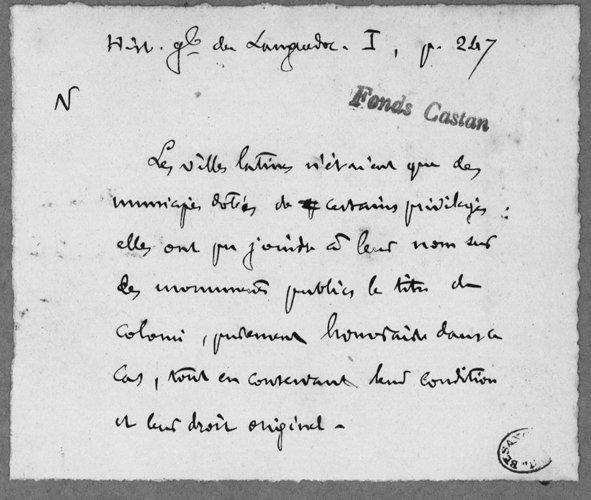 Hist. gle du Languedoc. I, p. 247
N
Fonds Castan
Les villes latines n'étaient que des
municipes dotés de certains privilèges :
elles ont pu joindre à leur nom sur
des monuments publics le titre de
colonie, purement honoraire dans ce
cas, tout en conservant leur condition
et leur droit original.
BESANÇ